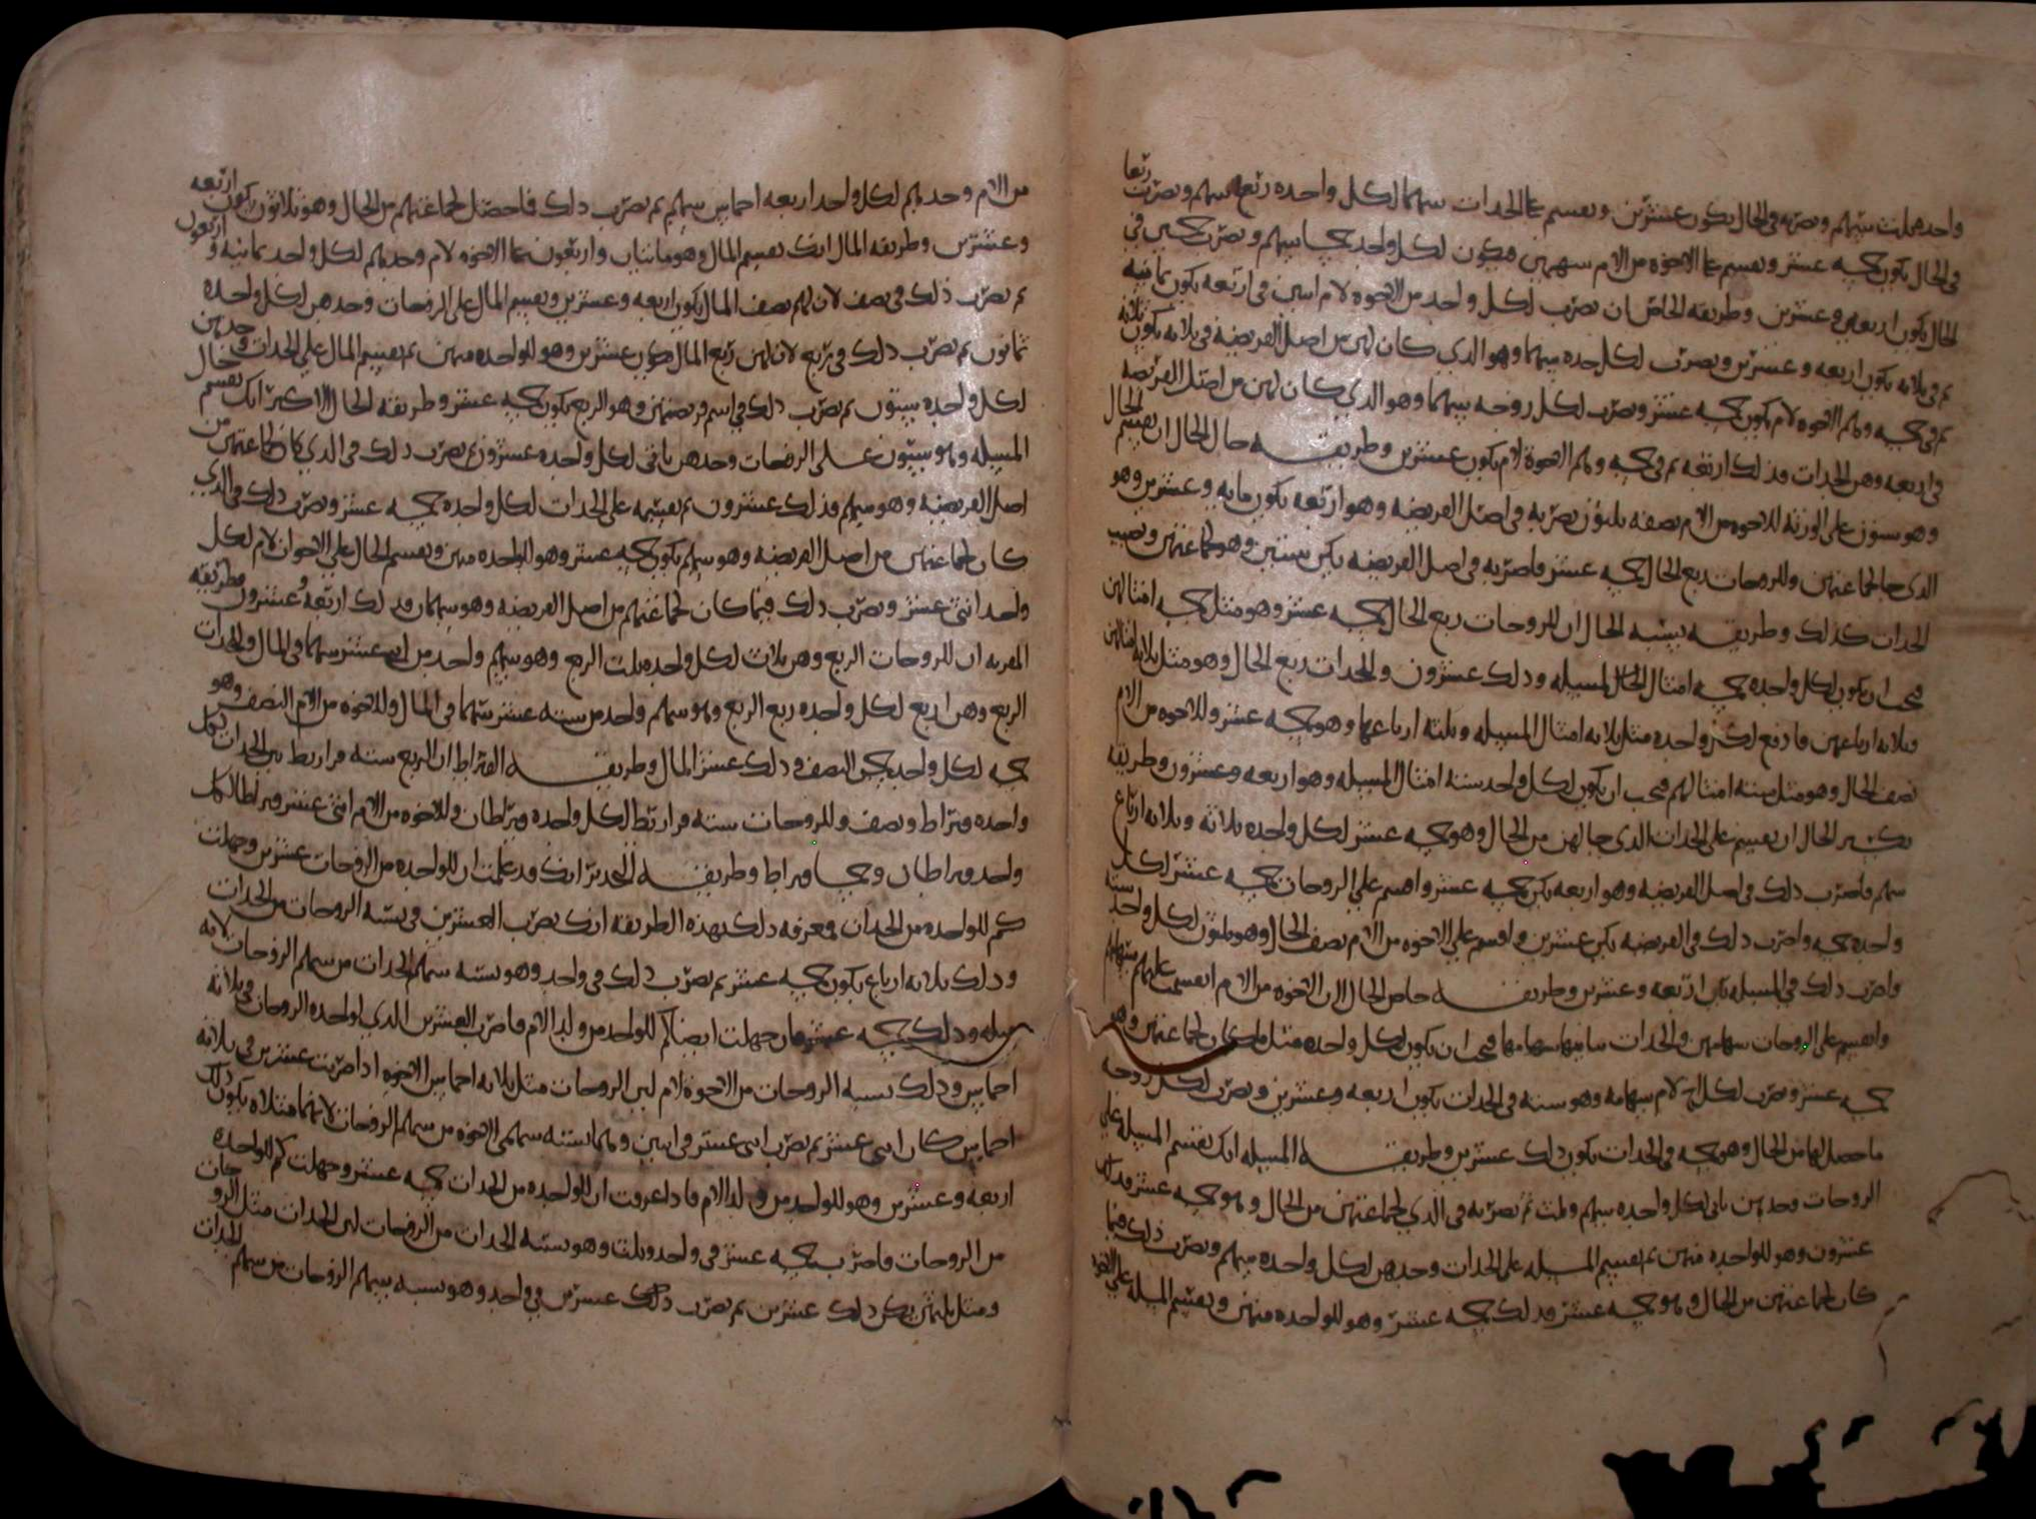 واحده ثلث سهم وضربه في الحال يكون عشرين ونقسم على الجدات سهما لكل واحده ربع سهم ونضرب ربعا
في الحال يكون خمسه عشر ونقسم على الاخوه من الام سهمين فيكون لكل واحد خمسا سهم ونضرب خمسين في
الحال يكون اربعه وعشرين وطريقه الخاص ان نضرب لكل واحد من الاخوه لام اثنين في اربعه يكون ثمانيه
ثم في ثلاثه يكون اربعه وعشرين ونضرب لكل جده سهما وهو الذي كان لهن من اصل الفريضه في ثلاثه يكون ثلاثه
ثم في خمسه وهم الاخوه لام يكون خمسه عشر ونضرب لكل زوجه سهما وهو الذي كان لهن من اصل الفريضه
في اربعه وهن الجدات فذلك اربعه ثم في خمسه وهم الاخوه لام يكون عشرين وطريقه حال الحال ان نقسم الحال
وهو ستون على الورثه للاخوه من الام نصفه ثلثون نضربه في اصل الفريضه وهو اربعه يكون مايه وعشرين وهو
الذي جا لجماعتهن وللزوجات ربع الحال خمسه عشر فاضربه في اصل الفريضه يكن ستين وهو لجماعتهن ونصيب
الجدات كذلك وطريقه نسبه الحال ان للزوجات ربع الحال خمسه عشر وهو مثل خمسه امثالهن
فيجب ان يكون لكل واحده خمسه امثال المسيله وذلك عشرون وللجدات ربع الحال وهو مثل ثلاثه امثالهن
وثلاثه ارباعهن فادفع لكل واحده مثل ثلاثه امثال المسيله وثلثه ارباعها وهو خمسه عشر وللاخوه من الام
نصف الحال وهو مثل سته امثالهم فيجب ان يكون لكل واحد سته امثال المسيله وهو اربعه وعشرون وطريقه
تكسير الحال ان نقسم على الجدات الذي جا لهن من الحال وهو خمسه عشر لكل واحده ثلاثه وثلاثه ارباع
سهم فاضرب ذلك في اصل الفريضه وهو اربعه يكن خمسه عشر واقسم على الزوجات خمسه عشر لكل
واحده خمسه واضرب ذلك في الفريضه يكن عشرين واقسم على الاخوه من الام نصف الحال وهو ثلثون لكل واحد سته
واضرب ذلك في المسيله يكن اربعه وعشرين وطريقه خاص الحال ان الاخوه من الام انقسمت عليهم سهامهم
وانقسم على الزوجات سهامهن والجدات سهامها فيجب ان يكون لكل واحده مثل ما كان لجماعتهن وهو
خمسه عشر ونضرب لكل اخ لام سهامه وهو سته في الجدات يكون اربعه وعشرين ونضرب لكل زوجه
ما حصل لها من الحال وهو خمسه في الجدات يكون ذلك عشرين وطريقه المسيله انك تقسم المسيله على
الزوجات وحدهن ياتي لكل واحده سهم وثلث ثم نضربه في الذي لجماعتهن من الحال وهو خمسه عشر فذلك
عشرون وهو للواحده منهن ثم نقسم المسيله على الجدات وحدهن لكل واحده سهم ونضرب ذلك فيما
كان لجماعتهن من الحال وهو خمسه عشر فذلك خمسه عشر وهو للواحده منهن ونقسم المسيله على الاخوه
من الام وحدهم لكل واحد اربعه اخماس سهم ثم نضرب ذلك فيما حصل لجماعتهم من الحال وهو ثلاثون يكون اربعه
وعشرين وطريقه المال انك تقسم المال وهو مايتان واربعون على الاخوه لام وحدهم لكل واحد ثمانيه واربعون
ثم نضرب ذلك في نصف لان لهم نصف المال يكون اربعه وعشرين ونقسم المال على الزوجات وحدهن لكل واحده
ثمانون ثم نضرب ذلك في ربع لان لهن ربع المال يكون عشرين وهو للواحده منهن ثم نقسم المال على الجدات وحدهن
لكل واحده ستون ثم نضرب ذلك في اسم فريضتهن وهو الربع يكون خمسه عشر وطريقه الحال الاكبر انك تقسم حال
المسيله وهو ستون على الزوجات وحدهن ياتي لكل واحده عشرون ثم نضرب ذلك في الذي كان لجماعتهن من
اصل الفريضه وهو سهم فذلك عشرون ثم نقسمه على الجدات لكل واحده خمسه عشر ونضرب ذلك في الذي
كان لجماعتهن من اصل الفريضه وهو سهم يكون خمسه عشر وهو للواحده منهن ونقسم الحال على الاخوات لام لكل
واحد اثنى عشر ونضرب ذلك فيما كان لجماعتهم من اصل الفريضه وهو سهمان فذلك اربعه وعشرون وطريقه
ان للزوجات الربع وهن ثلاث لكل واحده ثلث الربع وهو سهم واحد من اثنى عشر سهما في المال وللجدات
الربع وهن اربع لكل واحده ربع الربع وهو سهم واحد من سته عشر سهما في المال وللاخوه من الام النصف وهو
خمسه لكل واحد خمس النصف وذلك عشر المال وطريقه القيراط ان الربع سته قراريط بين الجدات لكل
واحده قيراط ونصف وللزوجات سته قراريط لكل واحده قيراطان وللاخوه من الام اثنى عشر قيراطا لكل
واحد قيراطان وخمسا قيراط وطريقه انك قد علمت ان للواحده من الزوجات عشرين وجهلت
كم للواحده من الجدات فمعرفه ذلك بهذه الطريقه انك تضرب العشرين في نسبه الزوجات من الجدات
وذلك ثلاثه ارباع يكون خمسه عشر ثم نضرب ذلك في واحد وهو نسبه سهم الجدات من سهم الزوجات لانه
مثله وذلك خمسه عشر فان جهلت ايضا كم للواحد من ولد الام فاضرب العشرين الذي لواحده الزوجات في ثلاثه
اخماس وذلك نسبه الزوجات من الاخوه لام لان الزوجات مثل ثلاثه اخماس الاخوه اذا ضربت عشرين في ثلاثه
اخماس كان اثنى عشر ثم نضرب اثنى عشر في اثنين وهما نسبه سهمي الاخوه من سهم الزوجات لانهما مثلاه يكون ذلك
اربعه وعشرين وهو للواحد من ولد الام فاذا عرفت ان للواحده من الجدات خمسه عشر وجهلت كم للواحده
من الزوجات فاضرب خمسه عشر في واحد وثلث وهو نسبه الجدات من الزوجات لان الجدات مثل الزوجات
ومثل ثلثهن يكن ذلك عشرين ثم نضرب ذلك عشرين في واحد وهو نسبه سهم الزوجات من سهم الجدات